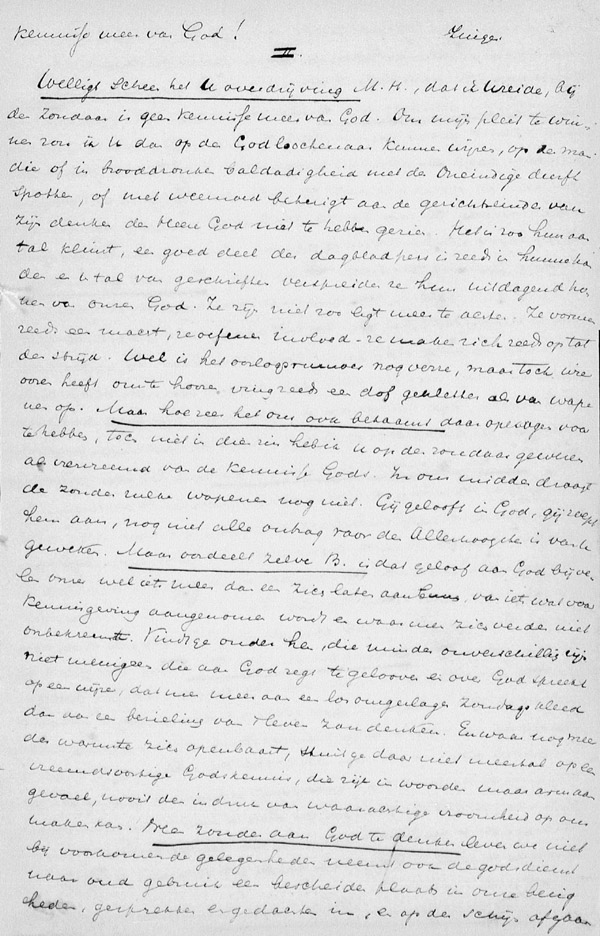 kennisse meer van God! Zingen
II.
Welligt scheen het U overdrijving M.H., dat ik zeide, bij
den zondaar is geen kennisse meer van God. Om mijn pleit te win-
nen zou ik U dan op de Godloochenaar kunnen wijzen, op de man
die of in brooddronken baldadigheid met den Oneindige durft
spotten, of met weemoed betuigt aan de gezichteinder van
zijn denken den Heere God niet te hebben gezien. Het is zoo hun aan
tal klimt, een goed deel der dagbladpers is reeds in hunne han
den en tal van geschriften verspreiden hun uitdagend ho
nen van onzen God. Ze zijn niet zoo ligt meer te achten. Ze vormen
reeds een macht, ze oefenen invloed - ze maken zich reeds op tot
den strijd. Wel is het oorlogsrumoer nog verre, maar toch wie
ooren heeft om te hooren ving reeds een dof gekletter als van wape
nen op. Maar hoezeer het ons ook betaamt daar op ons voor
te hebben, toch niet in dien zin heb ik U op den zondaar gewezen
als vervreemd van de kennisse Gods. In ons midden draagt
de zonde zulke wapenen nog niet. Gij gelooft in God, gij roept
hem aan, nog niet alle ontzag voor den Allerhoogste is van U
geweken. Maar oordeelt zelve B. is dat geloof aan God bij ve
len onzer wel iets meer dan een zich laten aanleunen, van iets wat voor
kennisgeving aangenomen wordt en waar men zich verder niet
om bekreunt. Vindt ge onder hen, die minder onverschillig zijn
niet menigeen die aan God zegt te gelooven en over God spreekt
op een wijze, dat men meer aan een los omgeslagen Zondagskleed
dan aan een bezieling van Hem zou denken. En waar nog meer
der warmte zich openbaart, stuit ge daar niet meestal op een
vreemdsoortige Godskennis, die rijk in woorden maar arm aan
gevoel, nooit den indruk van waarachtige vroomheid op ons
maken kan. Neen zonder aan God te denken leven we niet
bij voorkomende gelegenheden neemt ook de godsdienst
naar oud gebruik een bescheiden plaats in onze bezig
heden, gesprekken en gedachten in, en op den schijn afgaan